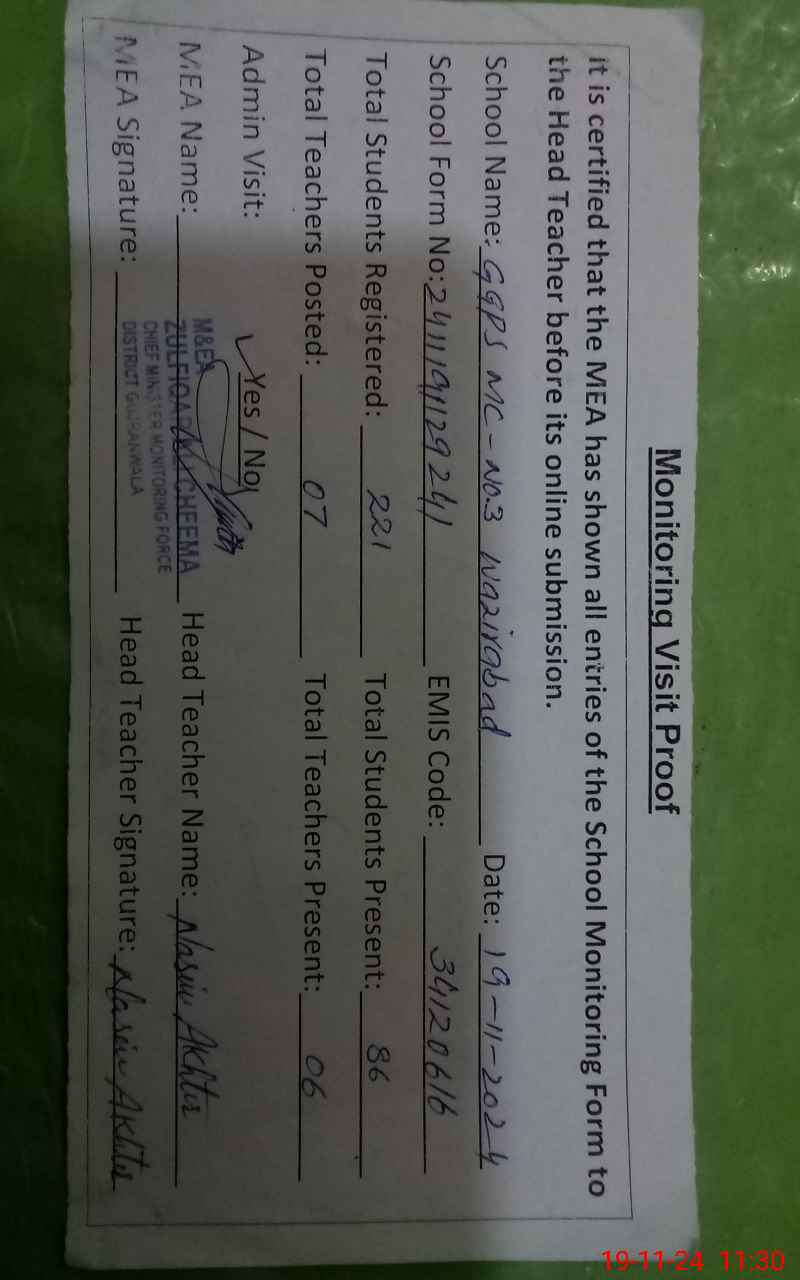 Monitoring Visit Proof
it is certified that the MEA has shown all entries of the School Monitoring Form to
the Head Teacher before its online submission.
School Name: GGPS MC-No.3 Wazirabad Date: 19-11-2024
School Form No: 2411191129241 EMIS Code: 34120616
Total Students Registered: 221 Total Students Present: 86
Total Teachers Posted: 07 Total Teachers Present: 06
Admin Visit: ✓ Yes / No
M&EA
MEA Name: ZULFIQAR CHEEMA Head Teacher Name: Nasim Akhter
CHIEF MINISTER MONITORING FORCE
MEA Signature: Head Teacher Signature: Nasim Akhter
DISTRICT GUJRANWALA
19-11-24 11:30